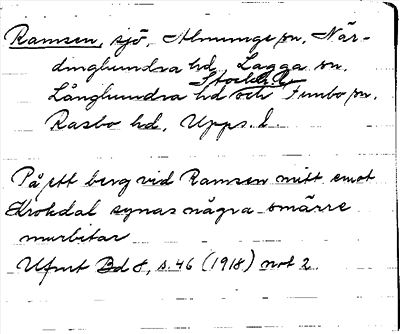 Ramsen, sjö, Almunge sn, När-
dinghundra hd, Lagga sn,
Stockh. l.
Långhundra hd och Funbo sn,
Rasbo hd, Upps. l.
På ett berg vid Ramsen mitt emot
Krokdal synas några smärre
murbitar
Ufmt Bd 8, s. 46 (1918) not 2